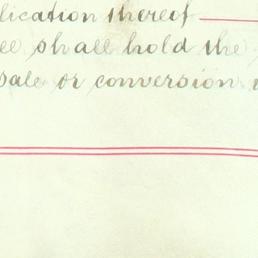 lication thereof
ee shall hold the
sale or conversion